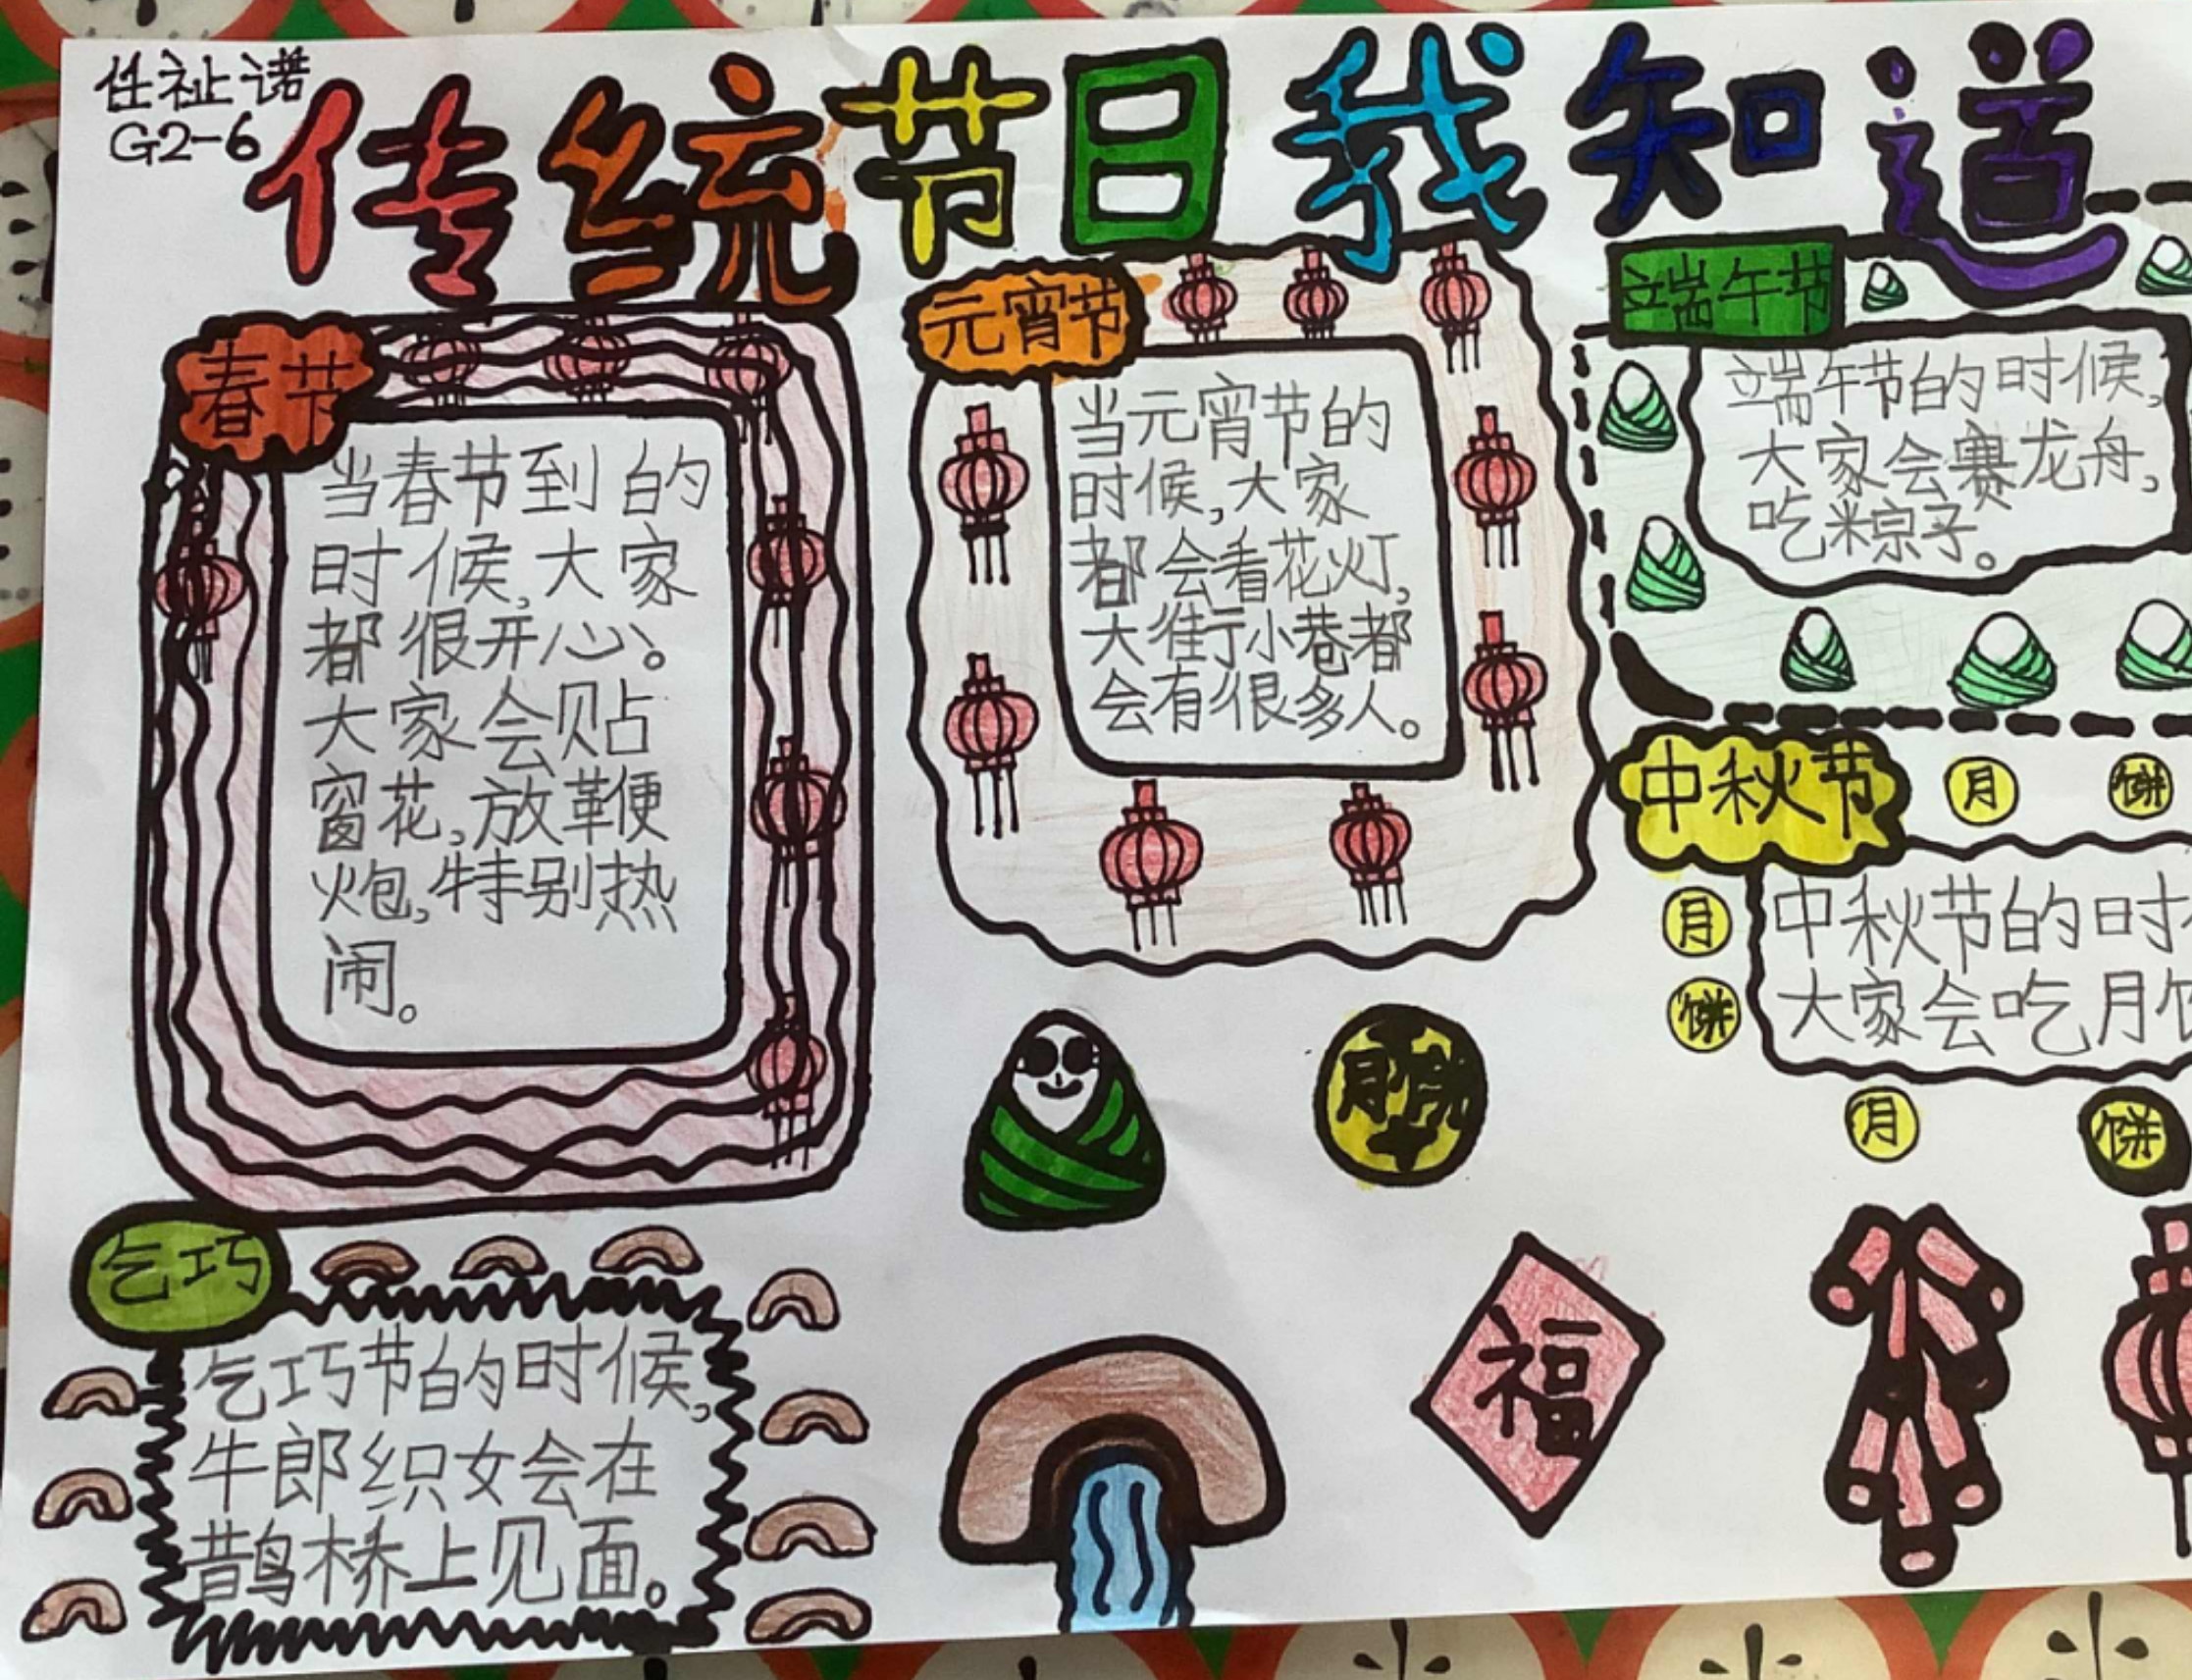 任祉诺
G2-6
传统节日我知道
春节
当春节到的
时候,大家
都很开心。
大家会贴
窗花,放鞭
炮,特别热
闹。
元宵节
当元宵节的
时候,大家
都会看花灯,
大街小巷都
会有很多人。
端午节
端午节的时候,
大家会赛龙舟,
吃粽子。
中秋节
月
饼
月
饼
中秋节的时
大家会吃月
月
饼
月饼
乞巧
乞巧节的时候,
牛郎织女会在
鹊桥上见面。
福